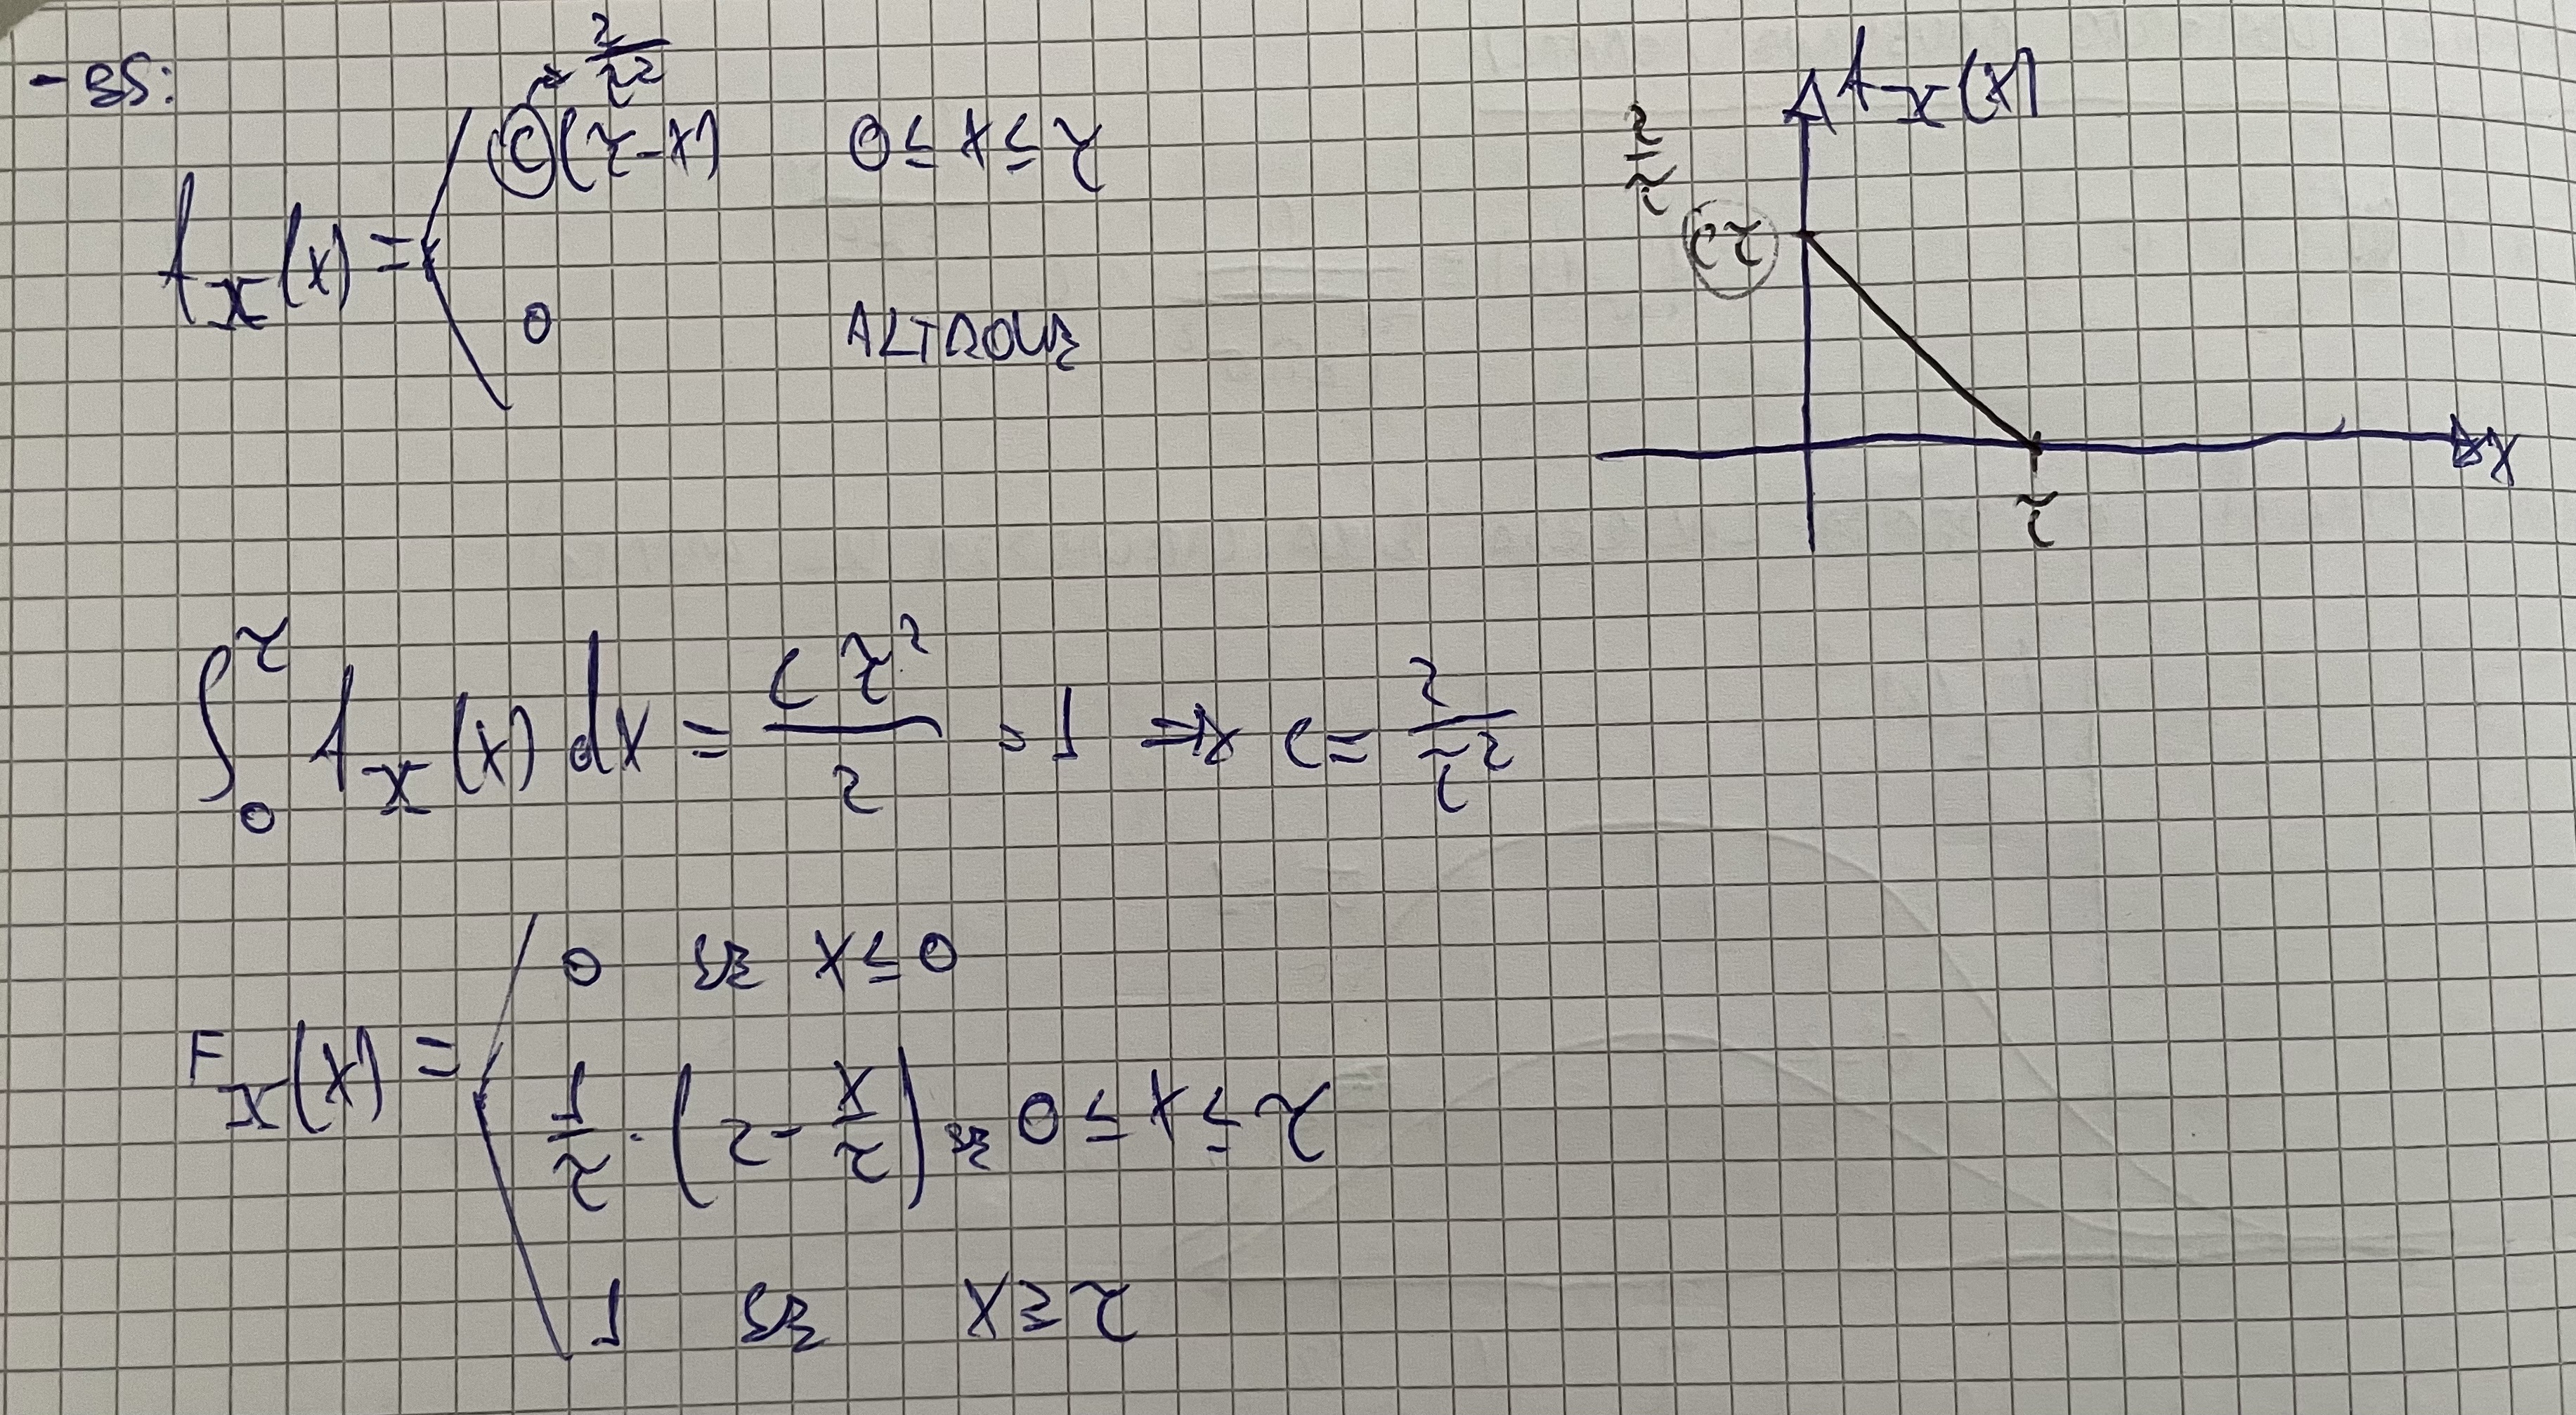 - ES:
f_X(x) = { C(τ-x)   0 ≤ x ≤ τ
C → 2/τ²
0   ALTROVE
f_X(x)
2/τ
Cτ
τ
x
∫_0^τ f_X(x) dx = Cτ²/2 = 1 ⇒ C = 2/τ²
F_X(x) = { 0 SE x ≤ 0
1/τ · (2 - x/τ) SE 0 ≤ x ≤ τ
1 SE x ≥ τ